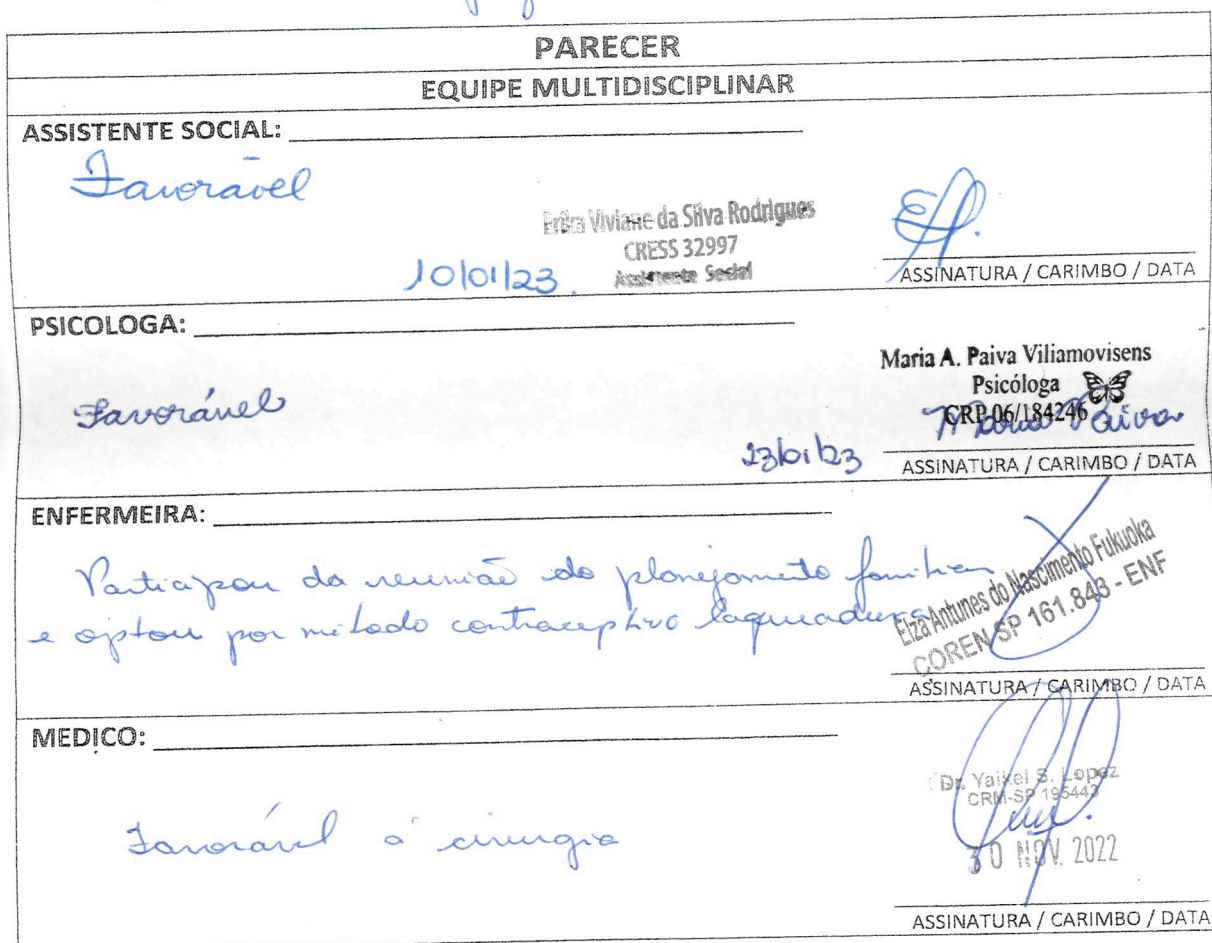 PARECER
EQUIPE MULTIDISCIPLINAR
ASSISTENTE SOCIAL:
Favorável
Erika Viviane da Silva Rodrigues
CRESS 32997
Assistente Social
10/01/23.
ASSINATURA / CARIMBO / DATA
PSICOLOGA:
Maria A. Paiva Viliamovisens
Psicóloga
CRP 06/184246
Favorável
Maria Paiva
23/01/23
ASSINATURA / CARIMBO / DATA
ENFERMEIRA:
Participou da reunião do planejamento familiar
e optou por método contraceptivo laqueadura
Elza Antunes do Nascimento Fukuoka
COREN-SP 161.843 - ENF
ASSINATURA / CARIMBO / DATA
MEDICO:
Dr. Yaikel S. Lopez
CRM-SP 195443
Favorável á cirurgia
30 NOV. 2022
ASSINATURA / CARIMBO / DATA